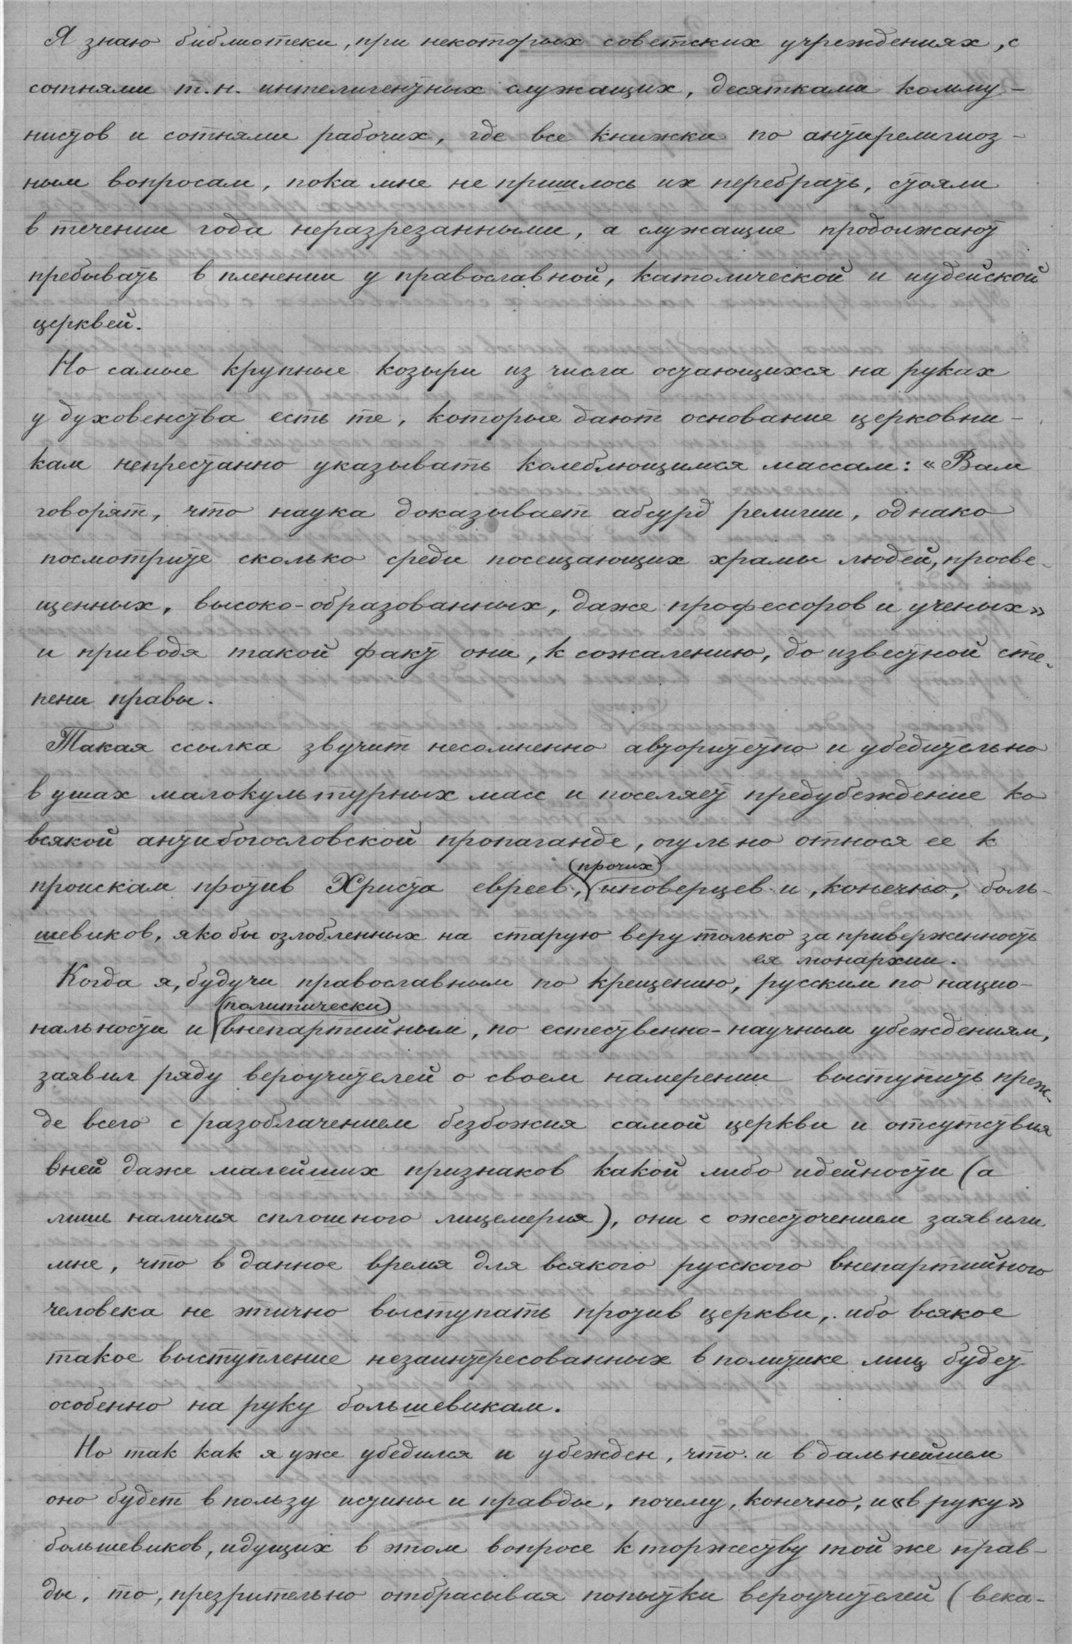 Я знаю библиотеки, при некоторых советских учреждениях, с
сотнями т.н. интелигентных служащих, десятками комму-
нистов и сотнями рабочих, где все книжки по антирелигиоз-
ным вопросам, пока мне не пришлось их перебрать, стояли
в течении года неразрезанными, а служащие продолжают
пребывать в пленении у православной, католической и иудейской
церквей.
Но самые крупные козыри из числа остающихся на руках
у духовенства есть те, которые дают основание церковни-
кам непрестанно указывать колеблющимся массам: «Вам
говорят, что наука доказывает абсурд религии, однако
посмотрите сколько среди посещающих храмы людей, просве-
щенных, высоко-образованных, даже профессоров и ученых»
и приводя такой факт они, к сожалению, до известной сте-
пени правы.
Такая ссылка звучит несомненно авторитетно и убедительно
в ушах малокультурных масс и поселяет предубеждение ко
всякой антибогословской пропаганде, огульно относя ее к
(прочих)
проискам против Христа евреев, иноверцев и, конечно, боль-
шевиков, яко бы озлобленных на старую веру только за приверженность
ея монархии.
Когда я, будучи православным по крещению, русским по нацио-
(политически)
нальности и внепартийным, по естественно-научным убеждениям,
заявил ряду вероучителей о своем намерении выступить преж-
де всего с разоблачением безбожия самой церкви и отсутствия
в ней даже малейших признаков какой либо идейности (а
лишь наличия сплошного лицемерия), они с ожесточением заявили
мне, что в данное время для всякого русского внепартийного
человека не этично выступать против церкви, ибо всякое
такое выступление незаинтересованных в политике лиц будет
особенно на руку большевикам.
Но так как я уже убедился и убежден, что и в дальнейшем
оно будет в пользу истины и правды, почему, конечно, и «в руку»
большевиков, идущих в этом вопросе к торжеству той же прав-
ды, то, презрительно отбрасывая попытки вероучителей (века-